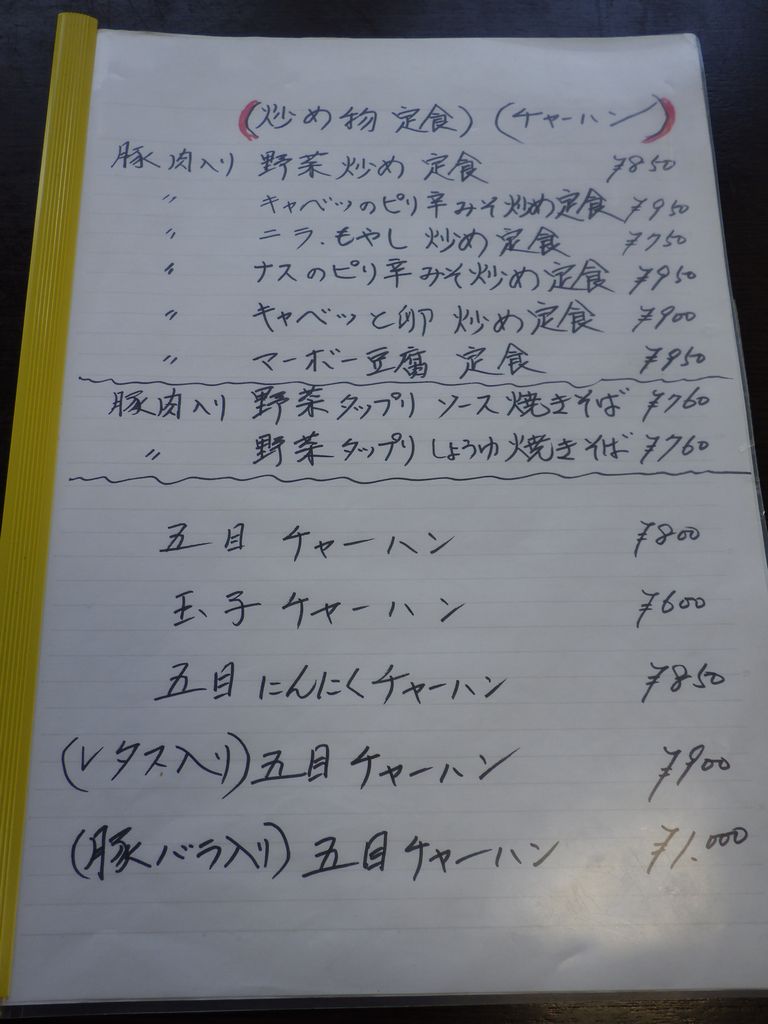 (炒め物定食)(チャーハン)
豚肉入り 野菜炒め定食 ¥850
〃 キャベツのピリ辛みそ炒め定食 ¥950
〃 ニラ.もやし炒め定食 ¥750
〃 ナスのピリ辛みそ炒め定食 ¥950
〃 キャベツと卵炒め定食 ¥900
〃 マーボー豆腐定食 ¥950
豚肉入り 野菜タップリソース焼きそば ¥760
〃 野菜タップリしょうゆ焼きそば ¥760
五目チャーハン ¥800
玉子チャーハン ¥600
五目にんにくチャーハン ¥850
(レタス入り)五目チャーハン ¥900
(豚バラ入り)五目チャーハン ¥1.000